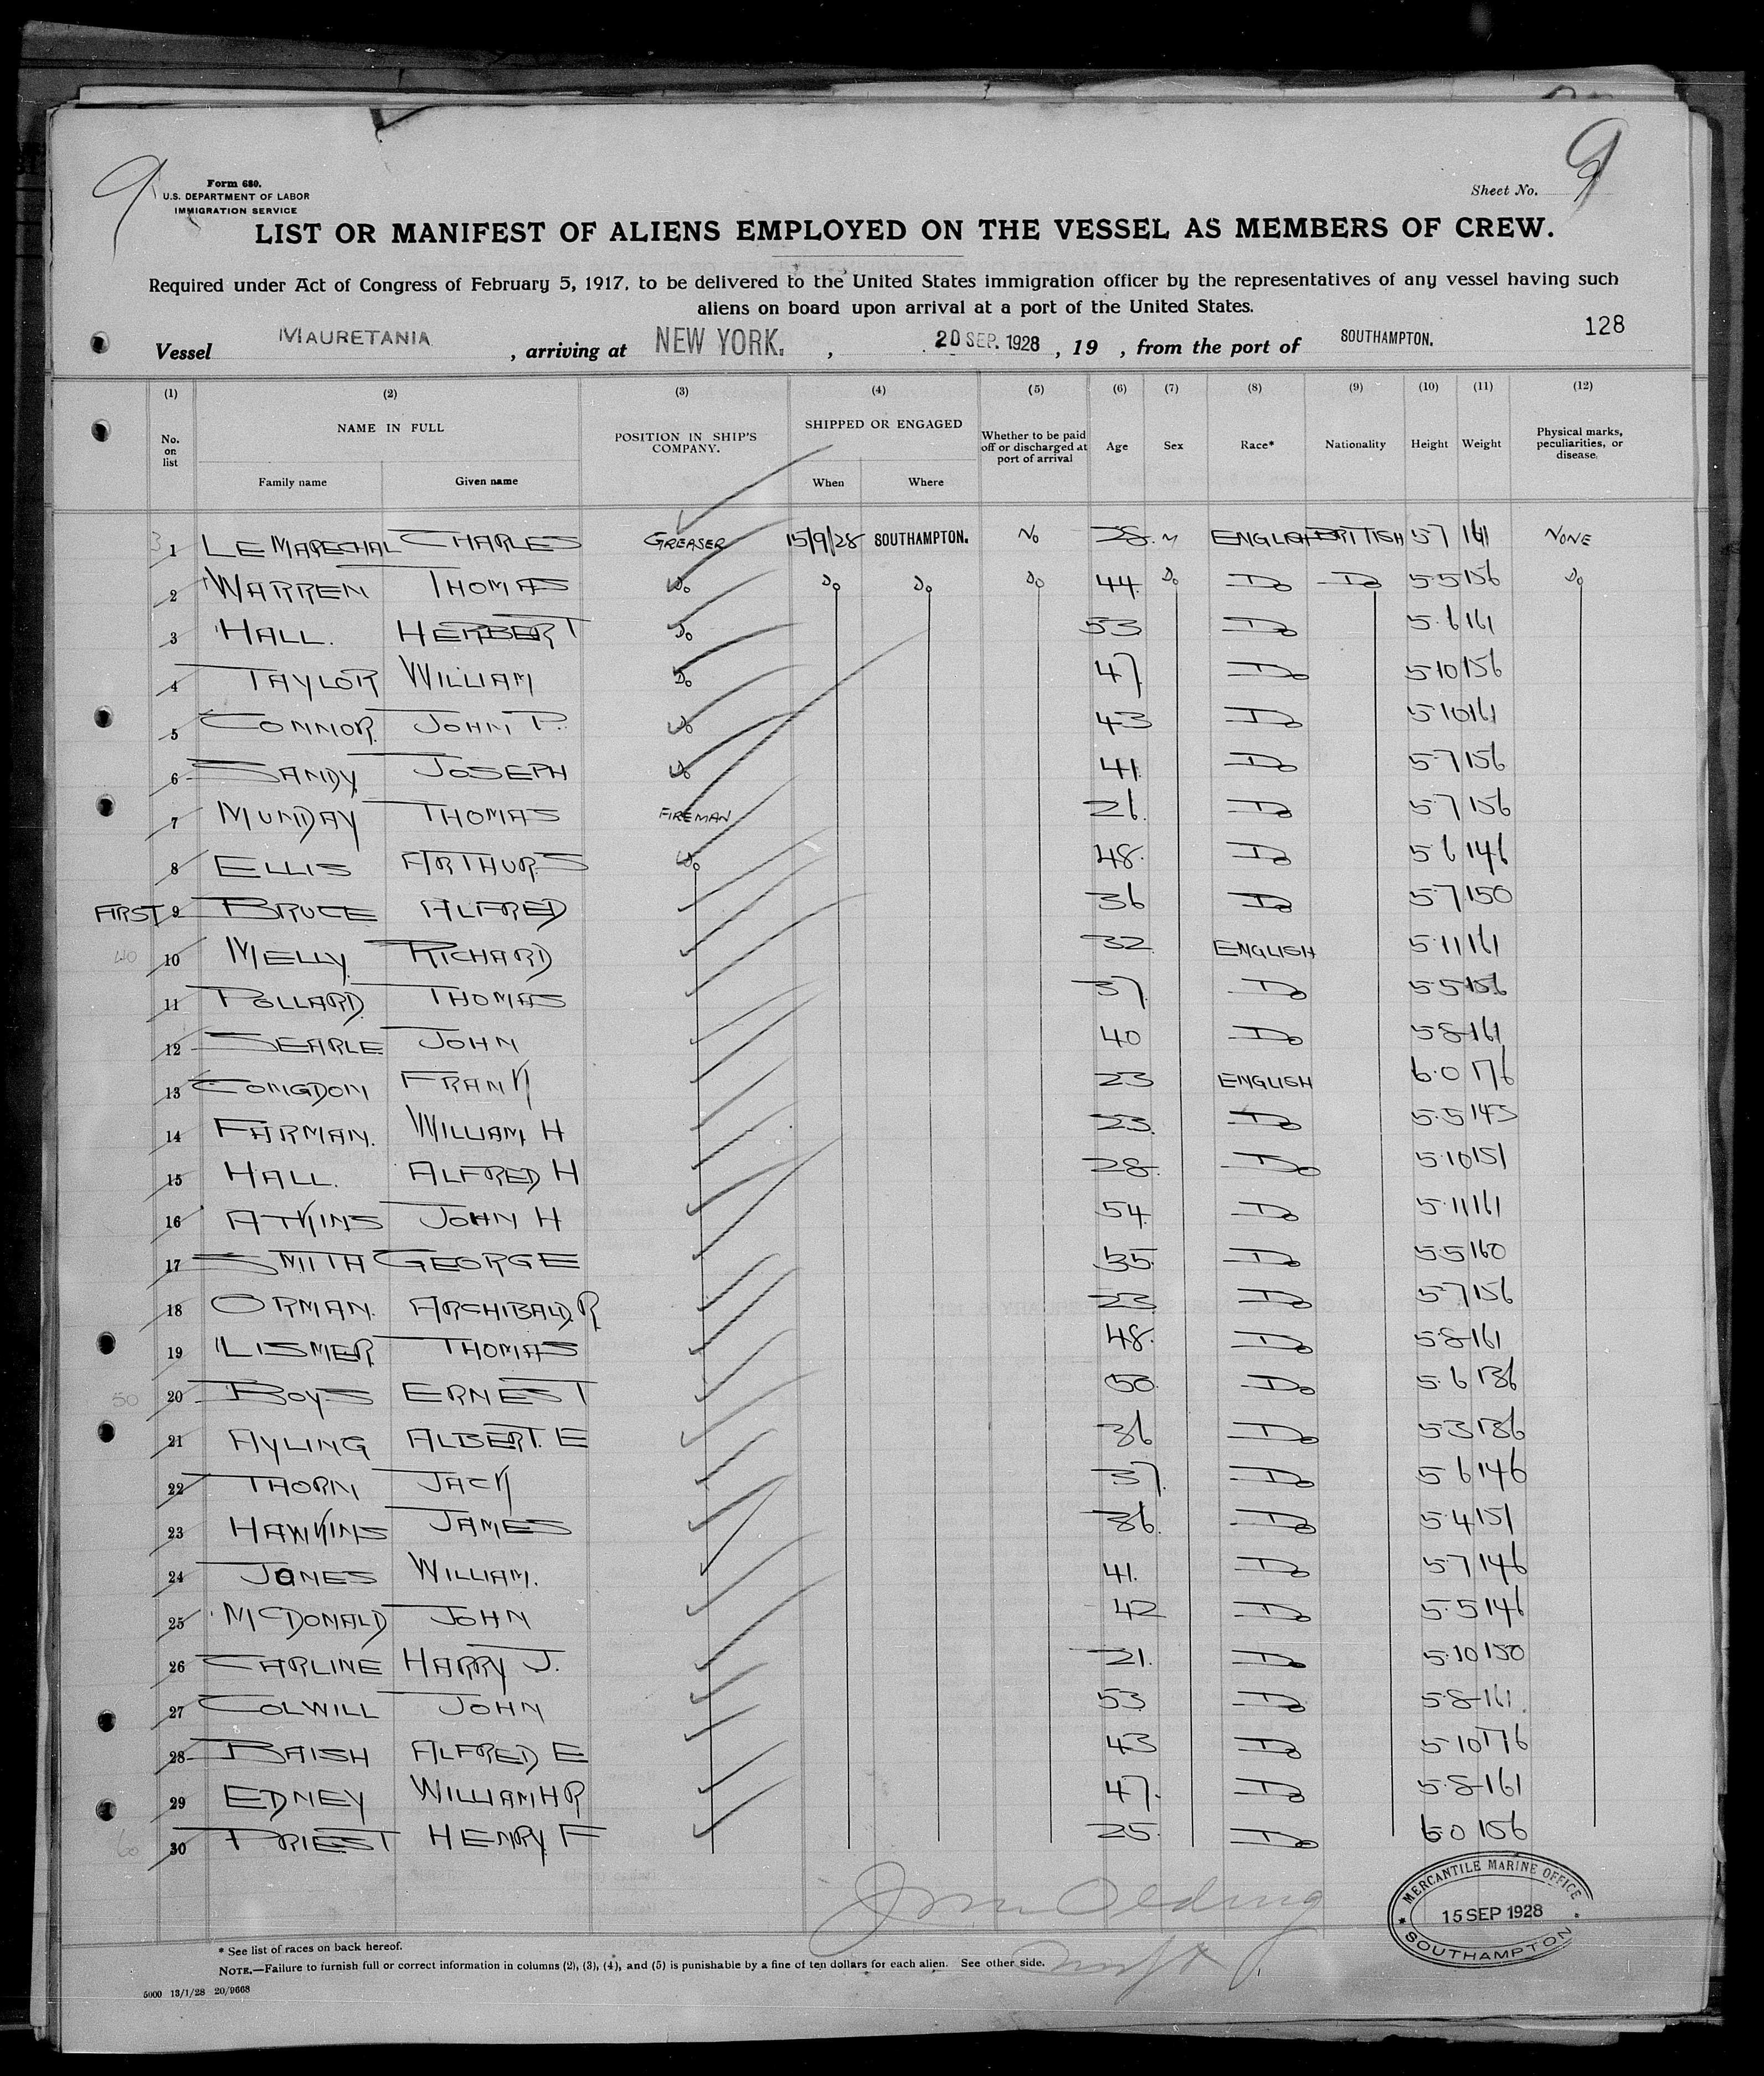 9
Form 680.
U.S. DEPARTMENT OF LABOR
IMMIGRATION SERVICE
Sheet No. 9
LIST OR MANIFEST OF ALIENS EMPLOYED ON THE VESSEL AS MEMBERS OF CREW.
Required under Act of Congress of February 5, 1917, to be delivered to the United States immigration officer by the representatives of any vessel having such
aliens on board upon arrival at a port of the United States.
128
Vessel MAURETANIA, arriving at NEW YORK., 20 SEP. 1928, 19 , from the port of SOUTHAMPTON.
(1) (2) (3) (4) (5) (6) (7) (8) (9) (10) (11) (12)
No. on list NAME IN FULL POSITION IN SHIP'S COMPANY. SHIPPED OR ENGAGED Whether to be paid off or discharged at port of arrival Age Sex Race* Nationality Height Weight Physical marks, peculiarities, or disease.
Family name Given name When Where
1 LE MARECHAL CHARLES GREASER 15/9/28 SOUTHAMPTON. No 28. M ENGLISH BRITISH 5 7 161 NONE
2 WARREN THOMAS Do Do Do Do 44 Do Do Do 5 5 156 Do
3 HALL. HERBERT Do 53 Do 5.6 161
4 TAYLOR WILLIAM Do 47 Do 5 10 156
5 CONNOR. JOHN P. Do 43 Do 5 10 161
6 SANDY JOSEPH Do 41 Do 5 7 156
7 MUNDAY THOMAS FIREMAN 26. Do 5.7 156
8 ELLIS ARTHUR S Do 48. Do 5 6 146
FIRST 9 BRUCE ALFRED 36 Do 5.7 150
40 10 MELLY. RICHARD 32 ENGLISH 5.11 161
11 POLLARD. THOMAS 37. Do 5.5 156
12 SEARLE. JOHN 40 Do 5 8 161
13 CONGDON FRANK 23 ENGLISH 6.0 176
14 FARMAN. WILLIAM H 23. Do 5.5 143
15 HALL. ALFRED H 28. Do 5.10 151
16 ATKINS JOHN H 54. Do 5.11 161
17 SMITH GEORGE 35. Do 5.5 160
18 ORMAN. ARCHIBALD R 23 Do 5.7 156
19 LISMER THOMAS 48. Do 5.8 161
50 20 BOYS ERNEST 50. Do 5.6 136
21 AYLING ALBERT. E 36 Do 5.3 136
22 THORN JACK 37. Do 5 6 146
23 HAWKINS JAMES 36. Do 5.4 151
24 JONES WILLIAM. 41. Do 5.7 146
25 McDONALD JOHN 42 Do 5.5 146
26 CARLINE HARRY J. 21. Do 5.10 150
27 COLWILL JOHN 53 Do 5.8 161
28 BAISH ALFRED E 43 Do 5 10 176
29 EDNEY WILLIAM H R 47. Do 5.8 161
60 30 PRIEST HENRY F 25. Do 6.0 156
MERCANTILE MARINE OFFICE
15 SEP 1928
SOUTHAMPTON
* See list of races on back hereof.
NOTE.—Failure to furnish full or correct information in columns (2), (3), (4), and (5) is punishable by a fine of ten dollars for each alien. See other side.
5000 13/1/28 20/9668